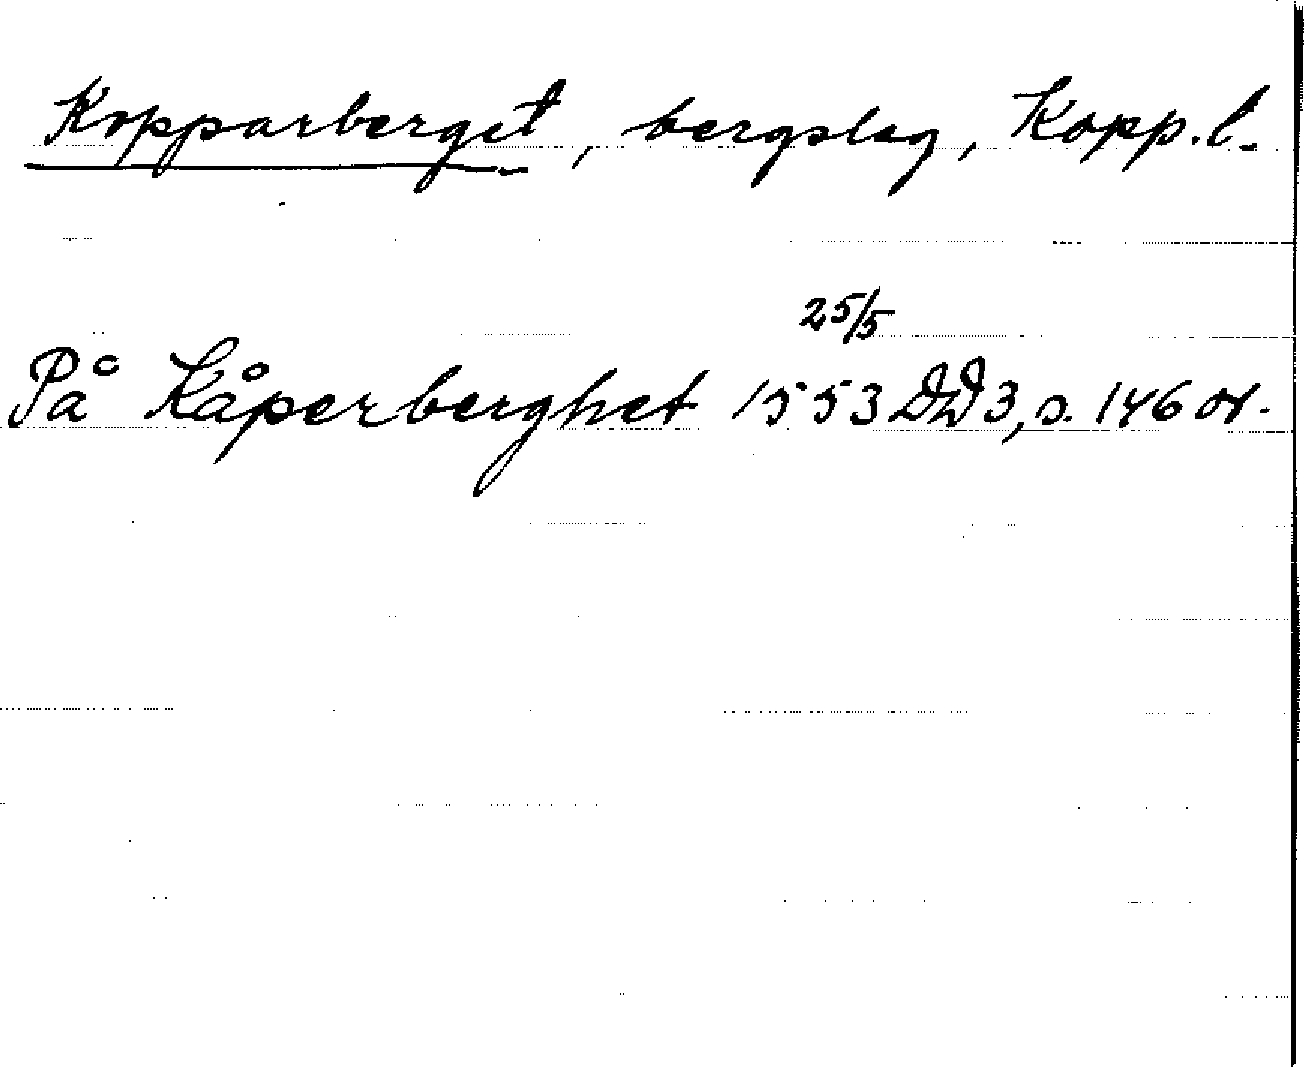 Kopparberget, bergslag, Kopp. l.
25/5
På Kåperberghet 1553 DD 3, s. 146 or.